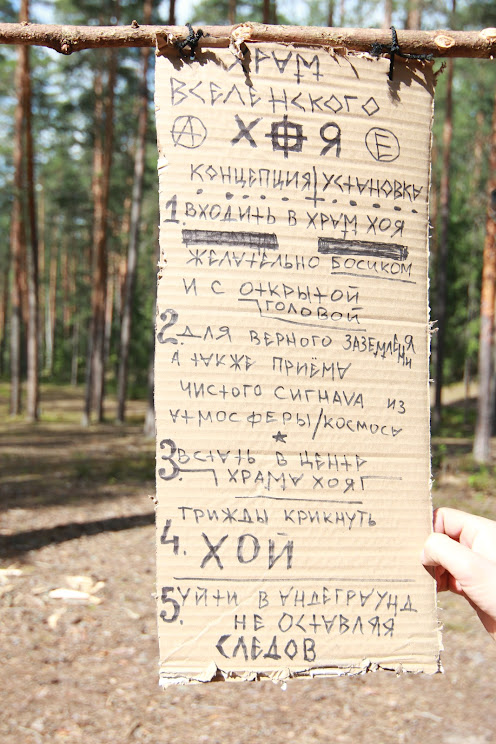 ХРАМ
ВСЕЛЕНСКОГО
А ХОЯ Е
КОНЦЕПЦИЯ/УСТАНОВКА
1. ВХОДИТЬ В ХРАМ ХОЯ
ЖЕЛАТЕЛЬНО БОСИКОМ
И С ОТКРЫТОЙ
ГОЛОВОЙ
2. ДЛЯ ВЕРНОГО ЗАЗЕМЛЕНИЯ
А ТАКЖЕ ПРИЁМА
ЧИСТОГО СИГНАЛА ИЗ
АТМОСФЕРЫ/КОСМОСА
3. ВСТАТЬ В ЦЕНТР
ХРАМА ХОЯ
4. ТРИЖДЫ КРИКНУТЬ
ХОЙ
5. УЙТИ В АНДЕГРАУНД
НЕ ОСТАВЛЯЯ
СЛЕДОВ